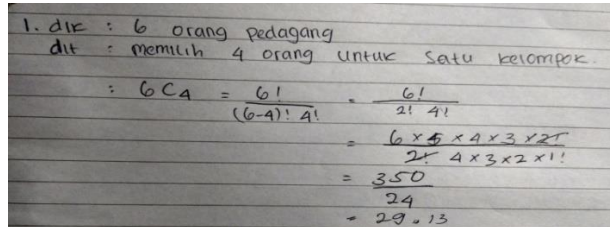 1. dik : 6 orang pedagang
dit : memilih 4 orang untuk satu kelompok.
: 6C4 = 6! / (6-4)! 4! = 6! / 2! 4!
= 6 x 5 x 4 x 3 x 2! / 2! 4 x 3 x 2 x 1!
= 350 / 24
= 29.13